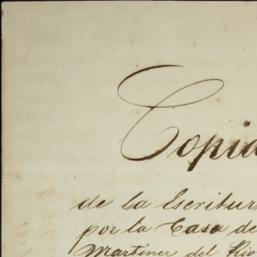 Copia
de la Escritur
por la Casa de
Martinez del Rio